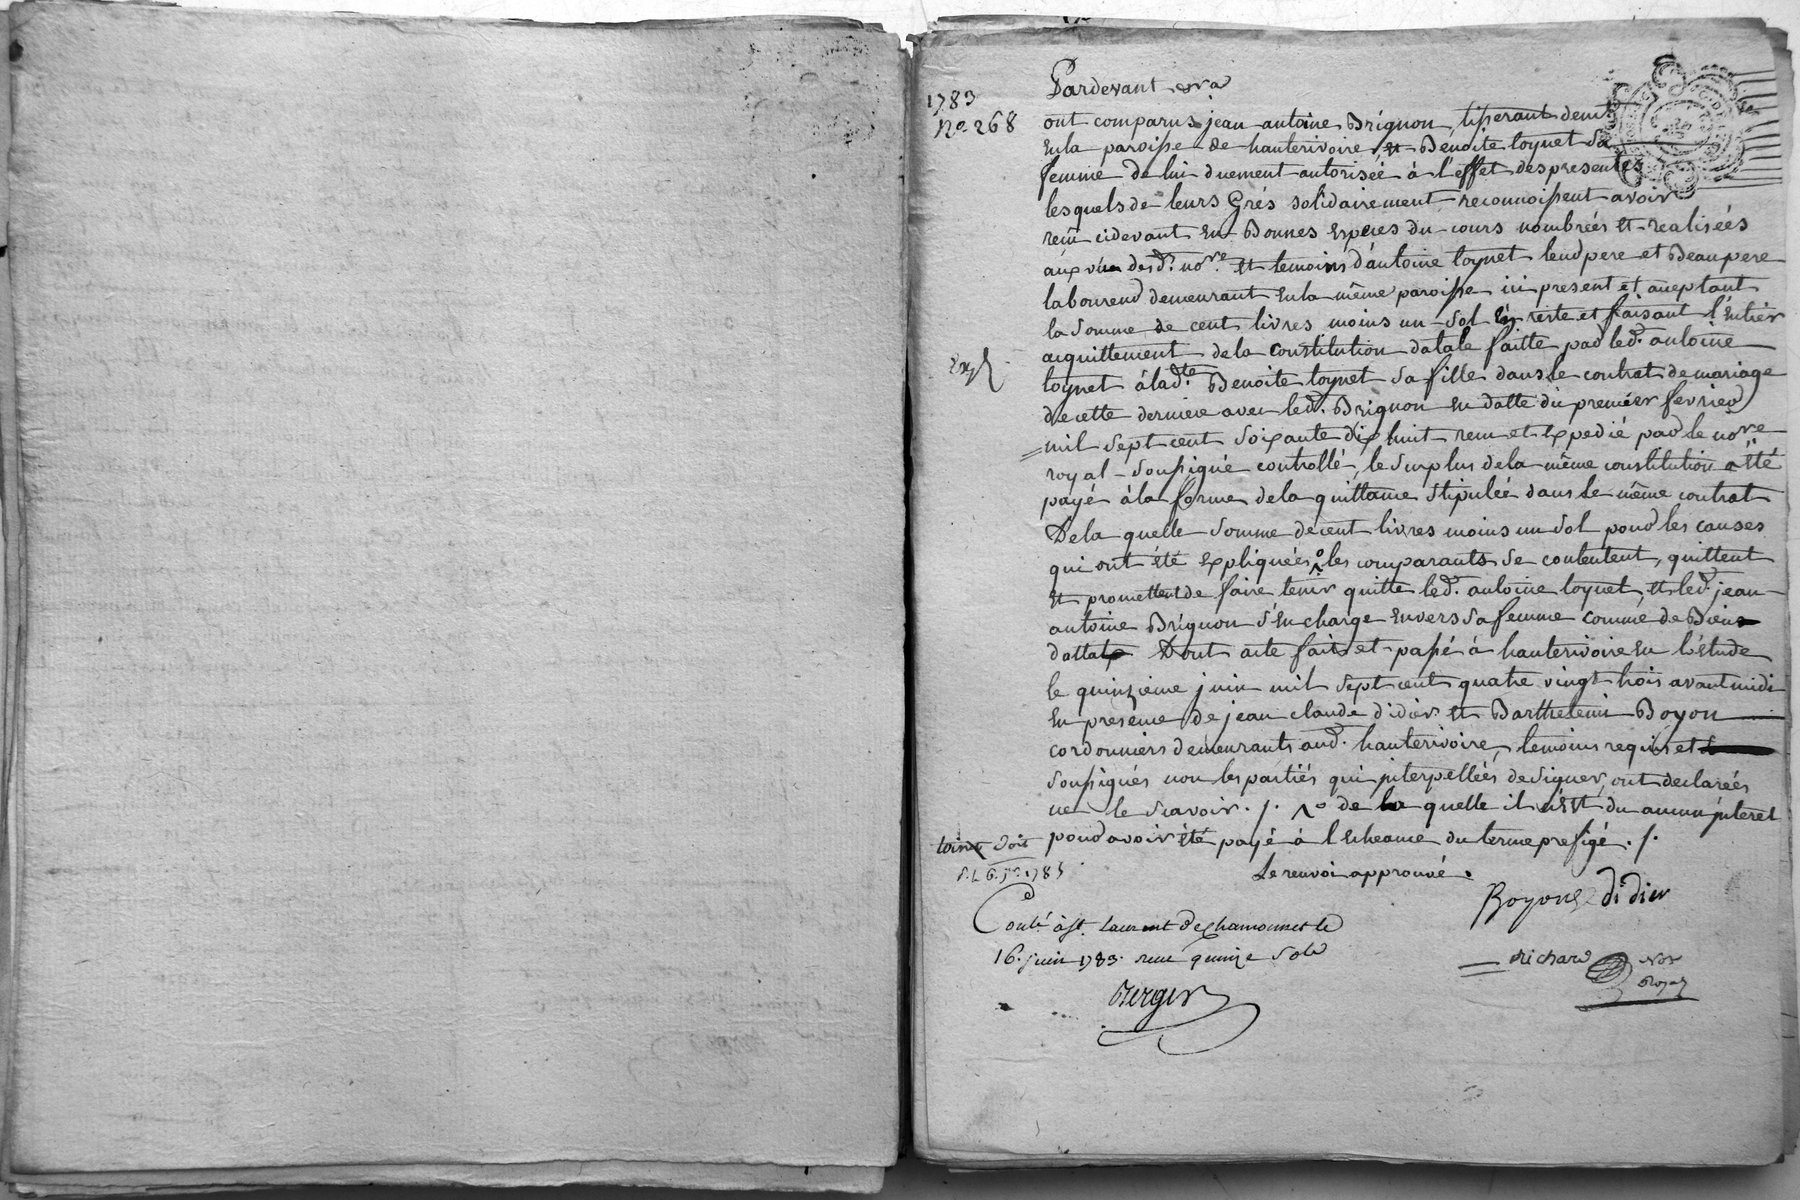 1783
No. 268
Pardevant &ra
ont comparus jean antoine Brignon, tisserant demt.
en la paroisse de hauterivoire et Benoite loynet Sa
femme de lui duement autorisée à l'effet des presentes
lesquels de leurs Grés solidairement reconnoissent avoir
reçu cidevant en Bonnes especes du cours nombrées et realisées
aux vue desd. nore. et temoins d'antoine loynet leur pere et Beaupere
laboureur demeurant en la même paroisse ici present et acceptant
la somme de cent livres moins un sol en reste et faisant l'entier
acquittement de la constitution datale faitte par led. antoine
Exp
loynet à ladte. Benoite loynet sa fille dans le contrat de mariage
de cette derniere avec led. Brignon en datte du premier fevrier
mil sept cent soixante dix huit reçu et expedié par le nore
royal soussigné controllé, le surplus de la même constitution a été
payé à la forme de la quittance stipulée dans le même contrat
De la quelle somme de cent livres moins un sol pour les causes
qui ont été expliquées les comparants se contentent, quittent
et promettent de faire tenir quitte led. antoine loynet, et led. jean
antoine Brignon s'en charge envers sa femme comme de Biens
dattal Dont acte fait et passé à hauterivoire en l'étude
le quinzieme juin mil sept cent quatre vingt trois avant midi
en presence de jean claude didier et Barthelemi Boyon
cordonniers demeurants aud. hauterivoire, temoins requis et
soussignés non les parties qui interpellées de signer, ont declarées
ne le scavoir ./. de la quelle il n'est du aucun interet
pour avoir été payé à l'echeance du terme prefigé ./.
Le renvoi approuvé.
Boyon didier
Conté. à st. Laurent de chamousset le
16. juin 1783. reçu quinze sols
richard Nore
Royal
Berger